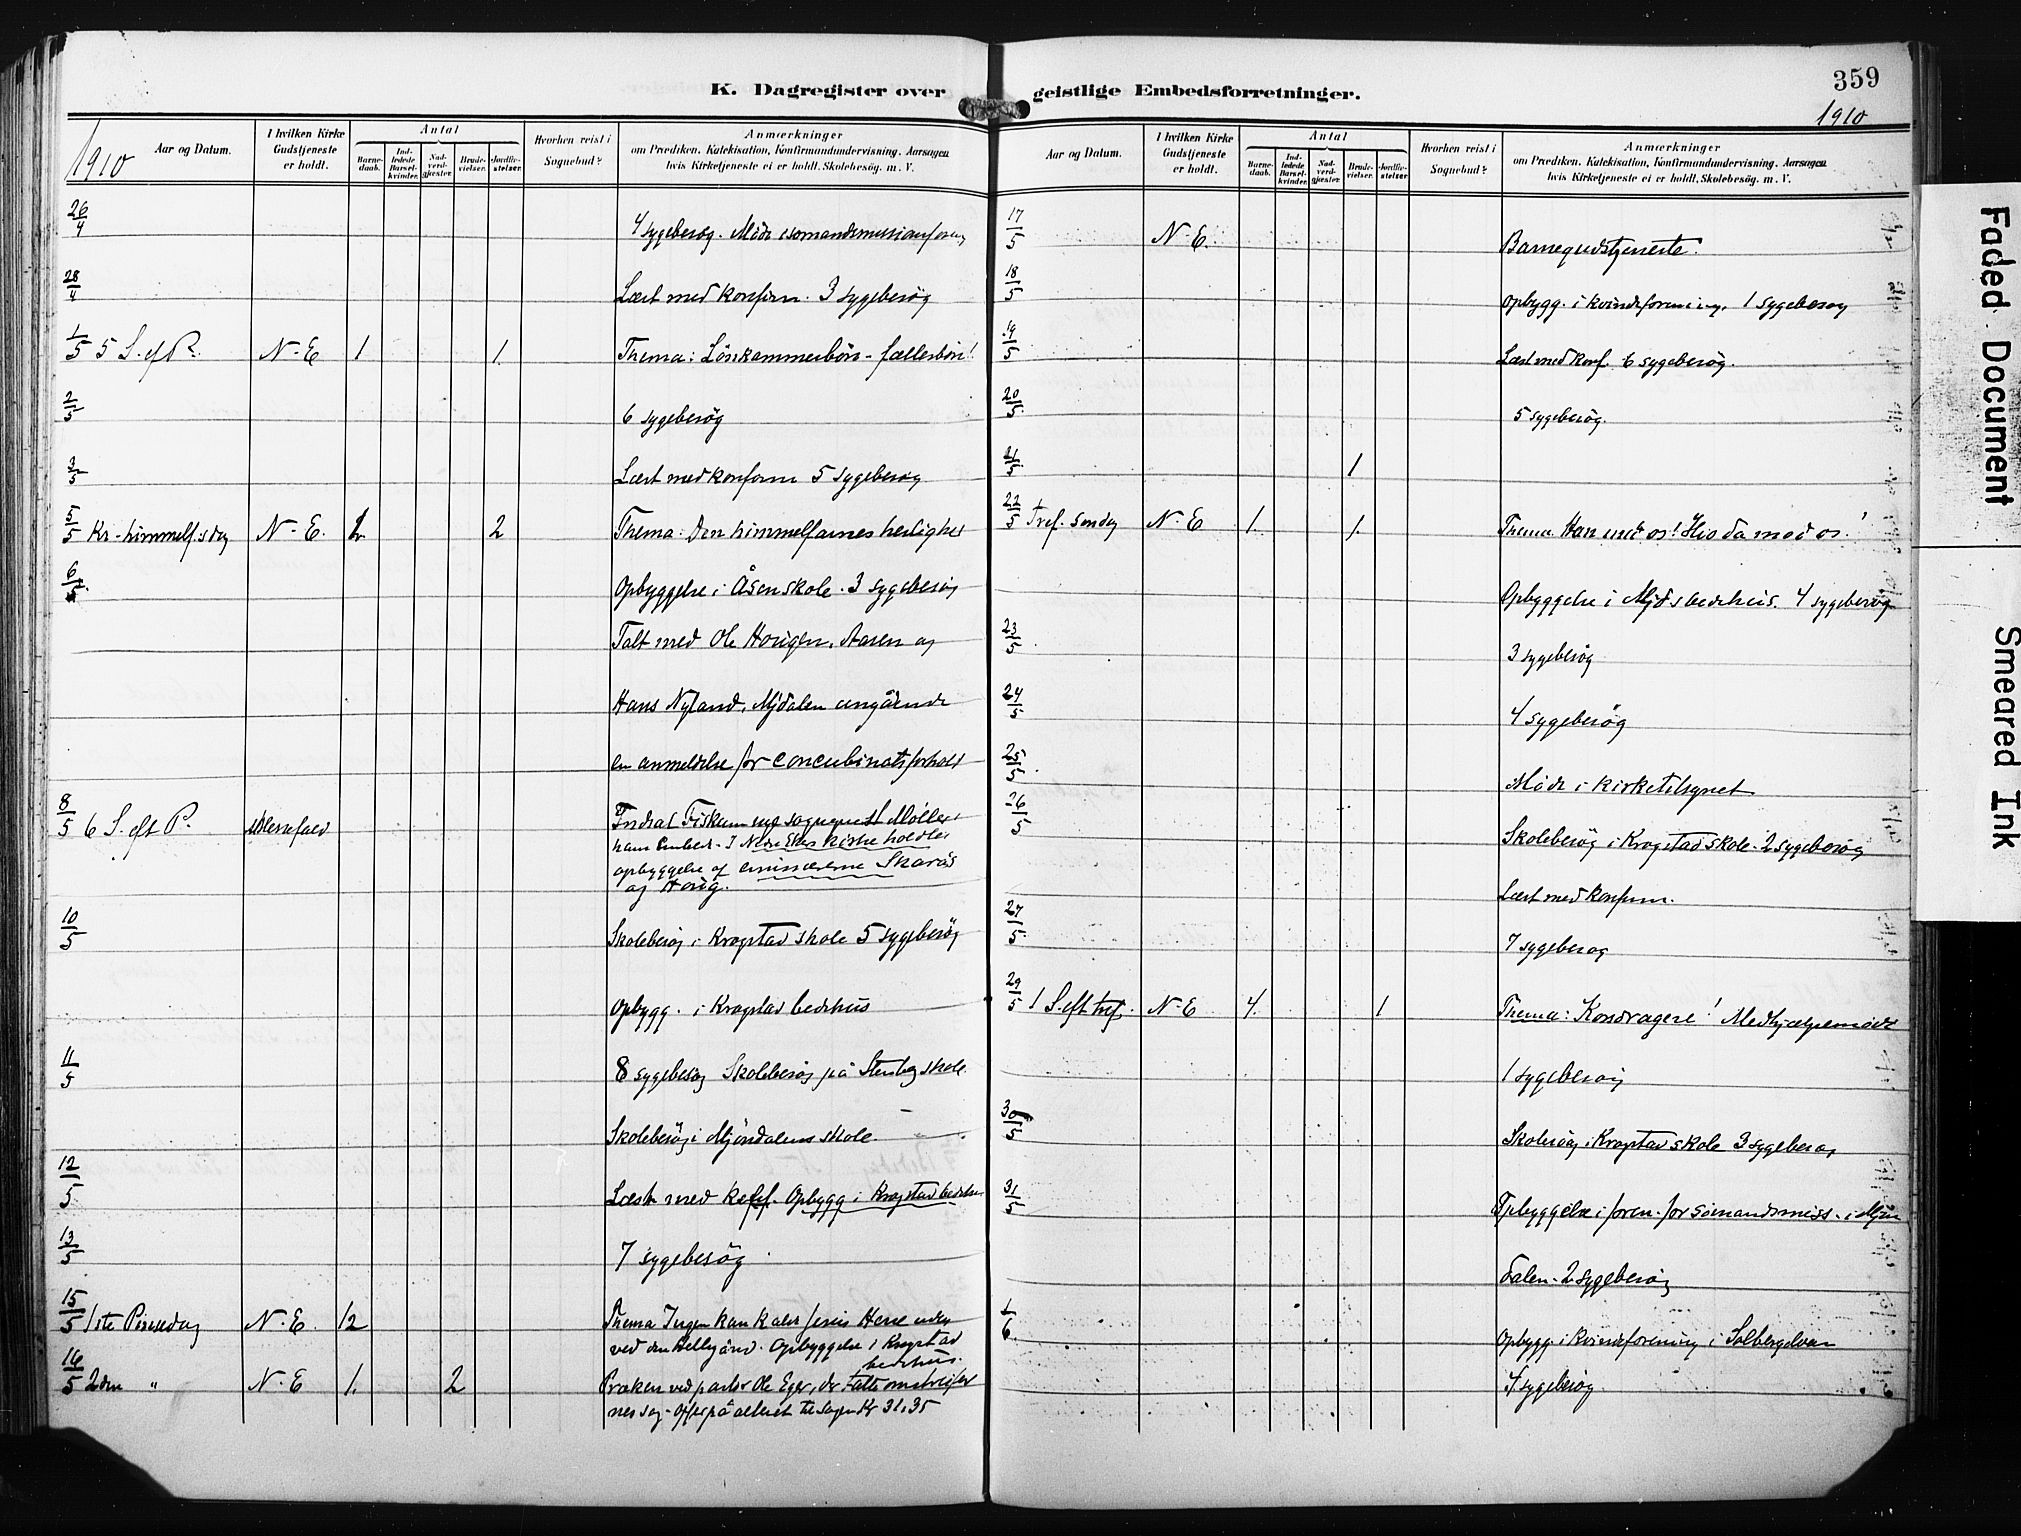 K. Dagregister over geistlige Embedsforretninger.
359
1910
1910
Aar og Datum.
I hvilken Kirke Gudstjeneste er holdt.
Antal
Barne-daab.
Ind-ledede Barsel-kvinder.
Nad-verd-gjæster.
Brude-vielser.
Jordfæ-stelser.
Hvorhen reist i Sognebud?
Anmærkninger
om Prædiken, Katekisation, Konfirmandundervisning, Aarsagen
hvis Kirketjeneste ei er holdt, Skolebesøg, m. V.
26/4 4 sygebesøg. Møde i sømandsmissionsforen
28/4 Læst med konfirm. 3 sygebesøg
1/5 5 S. ef P. N-E 1 1. Thema: Lønkammerbøn - fællesbøn!
2/5 6 sygebesøg
3/5 Læst med konform 5 sygebesøg
5/5 Kr. himmelf.sdag N-E. 2 Thema: Den himmelfarnes herlighet
6/5 Opbyggelse i Åsen skole. 3 sygebesøg
Talt med Ole Hougen, Aasen og
Hans Nyland, Mjdalen angående
en anmeldelse for concubinatsforhold
8/5 6 S. eft P.
Fiskum sognepræst Møller
hans Embed. I Nedre Ekers kirke holdtes
opbyggelse af emissærerne Skarås
og Houg.
10/5 Skolebesøg i Krogstad skole 5 sygebesøg
Opbygg. i Krogstad bedehus
11/5 8 sygebesøg Skolebesøg på Stenberg skole
Skolebesøg i Mjøndalens skole
12/5 Læst med konf. Opbygg i Krogstad bedehus
13/5 7 sygebesøg
15/5 1ste Pinsedag N-E. 12 Thema Ingen kan kalde Jesus Herre uden
ved den Helligånd. Opbyggelse i Krogstad
bedehus.
16/5 2den " N-E 1. 2 Præken ved pastor Ole Eger, der talte om
nes sag - Offer på alteret til sagen Kr 31,35
Aar og Datum.
I hvilken Kirke Gudstjeneste er holdt.
Antal
Barne-daab.
Ind-ledede Barsel-kvinder.
Nad-verd-gjæster.
Brude-vielser.
Jordfæ-stelser.
Hvorhen reist i Sognebud?
Anmærkninger
om Prædiken, Katekisation, Konfirmandundervisning, Aarsagen
hvis Kirketjeneste ei er holdt, Skolebesøg, m. V.
17/5 N-E. Barnegudstjeneste.
18/5 Opbygg. i kvindeforening, 1 sygebesøg
19/5 Læst med konf. 6 sygebesøg.
20/5 5 sygebesøg.
21/5 1
22/5 Tref. søndag N-E 1. 1. Thema Han med os! Hvo da mod os!
Opbyggelse i Mjds bedehus. 4 sygebesøg
23/5 3 sygebesøg
24/5 4 sygebesøg
25/5 Møde i kirketilsynet
26/5 Skolebesøg i Krogstad skole. 2 sygebesøg
Læst med konfirm.
27/5 7 sygebesøg
29/5 1 S. eft tref. N-E 4. 1 Thema: Korsdragere! Medhjælpermøde
1 sygebesøg
30/5 Skolesøg i Krogstad skole 3 sygebesøg
31/5 Opbyggelse i foren. for sømandsmiss. i Mjøn
dalen. 2 sygebesøg
1/6 Opbygg i kvindeforening i Solbergelven
4 sygebesøg.
Faded Document
Smeared Ink